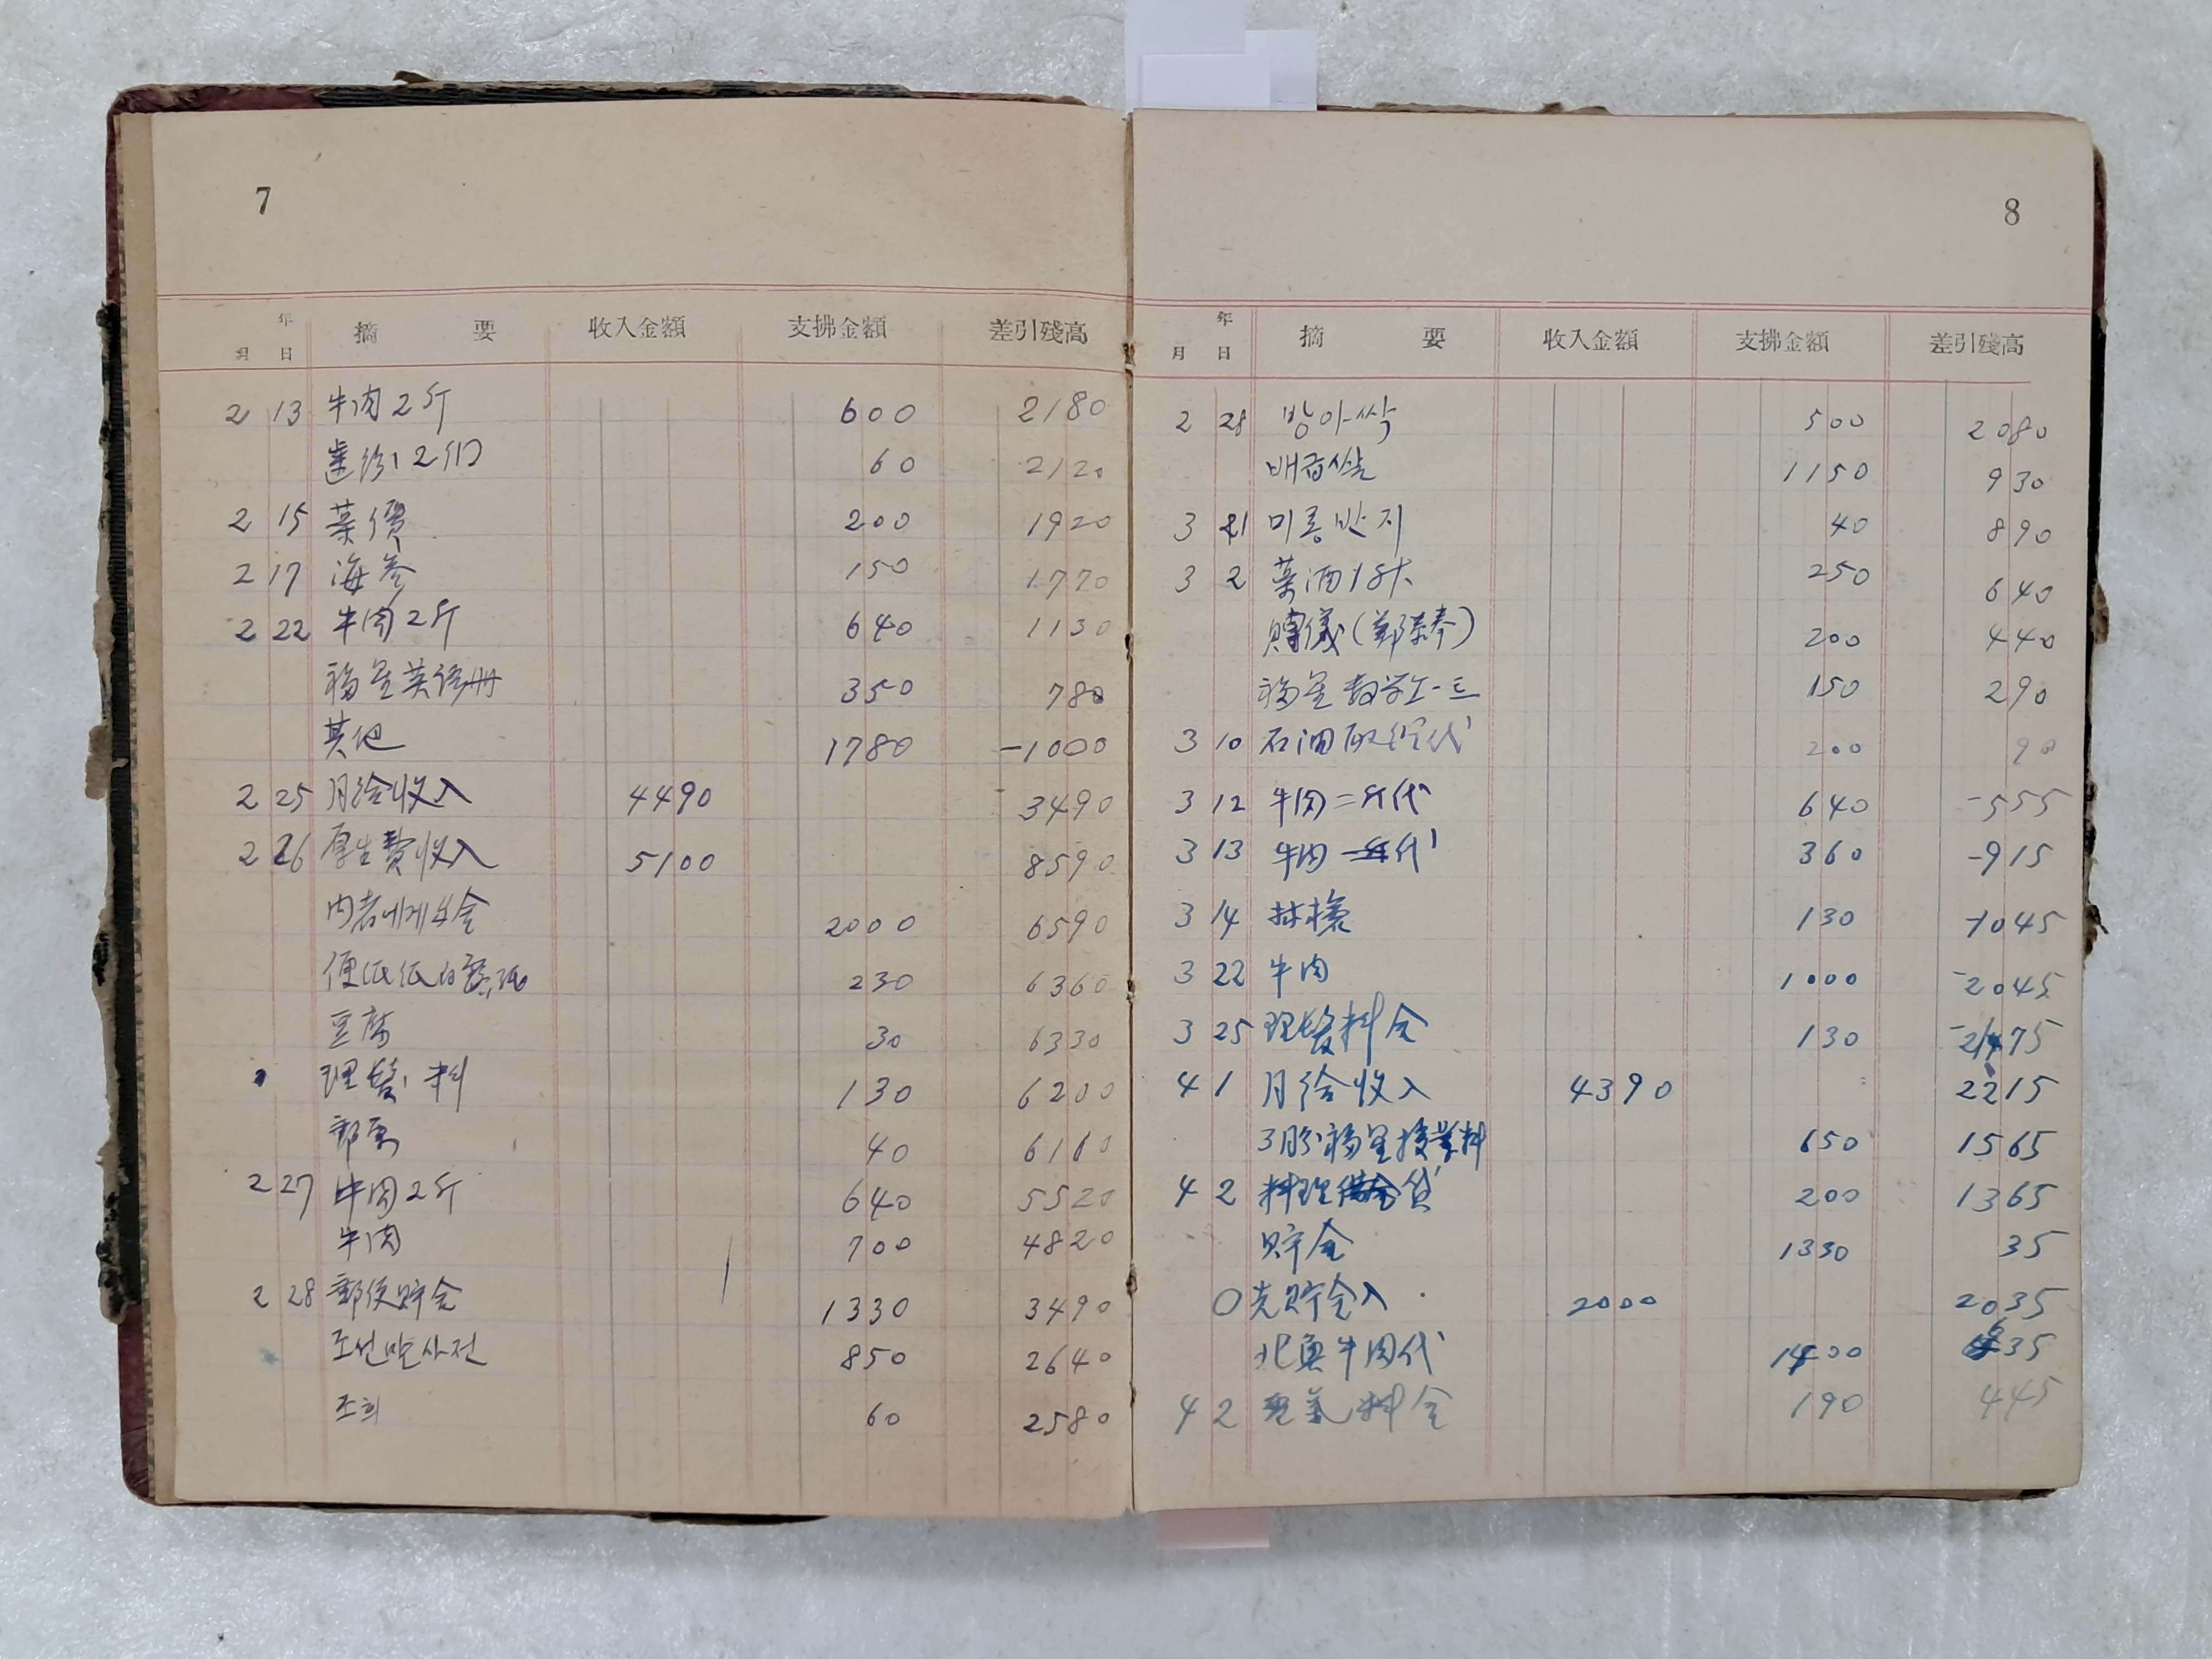 7
年
月 日 摘 要 收入金額 支拂金額 差引殘高
2 13 牛肉2斤 600 2180
齒粉 60 2120
2 15 菜價 200 1920
2 17 海參 150 1770
2 22 牛肉2斤 640 1130
福星英語冊 350 780
其他 1780 -1000
2 25 月給收入 4490 3490
2 26 厚生費收入 5100 8590
內者에게 2000 6590
230 6360
豆腐 30 6330
理髮料 130 6200
郵票 40 6160
2 27 牛肉2斤 640 5520
牛肉 700 4820
2 28 郵便貯金 1330 3490
조선말사전 850 2640
조희 60 2580
8
年
月 日 摘 要 收入金額 支拂金額 差引殘高
2 28 방아싹 500 2080
배급쌀 1150 930
3 1 반지 40 890
3 2 藥酒1升 250 640
賻儀(鄭泰奉) 200 440
福星数学 150 290
3 10 石油 200 90
3 12 牛肉二斤代 640 -555
3 13 牛肉一斤代 360 -915
3 14 林檎 130 -1045
3 22 牛肉 1000 -2045
3 25 理髮料金 130 -2175
4 1 月給收入 4390 2215
3月分福星授業料 650 1565
4 2 料理 200 1365
貯金 1330 35
0 先貯金入 2000 2035
北魚牛肉代 1400 635
4 2 電氣料金 190 445